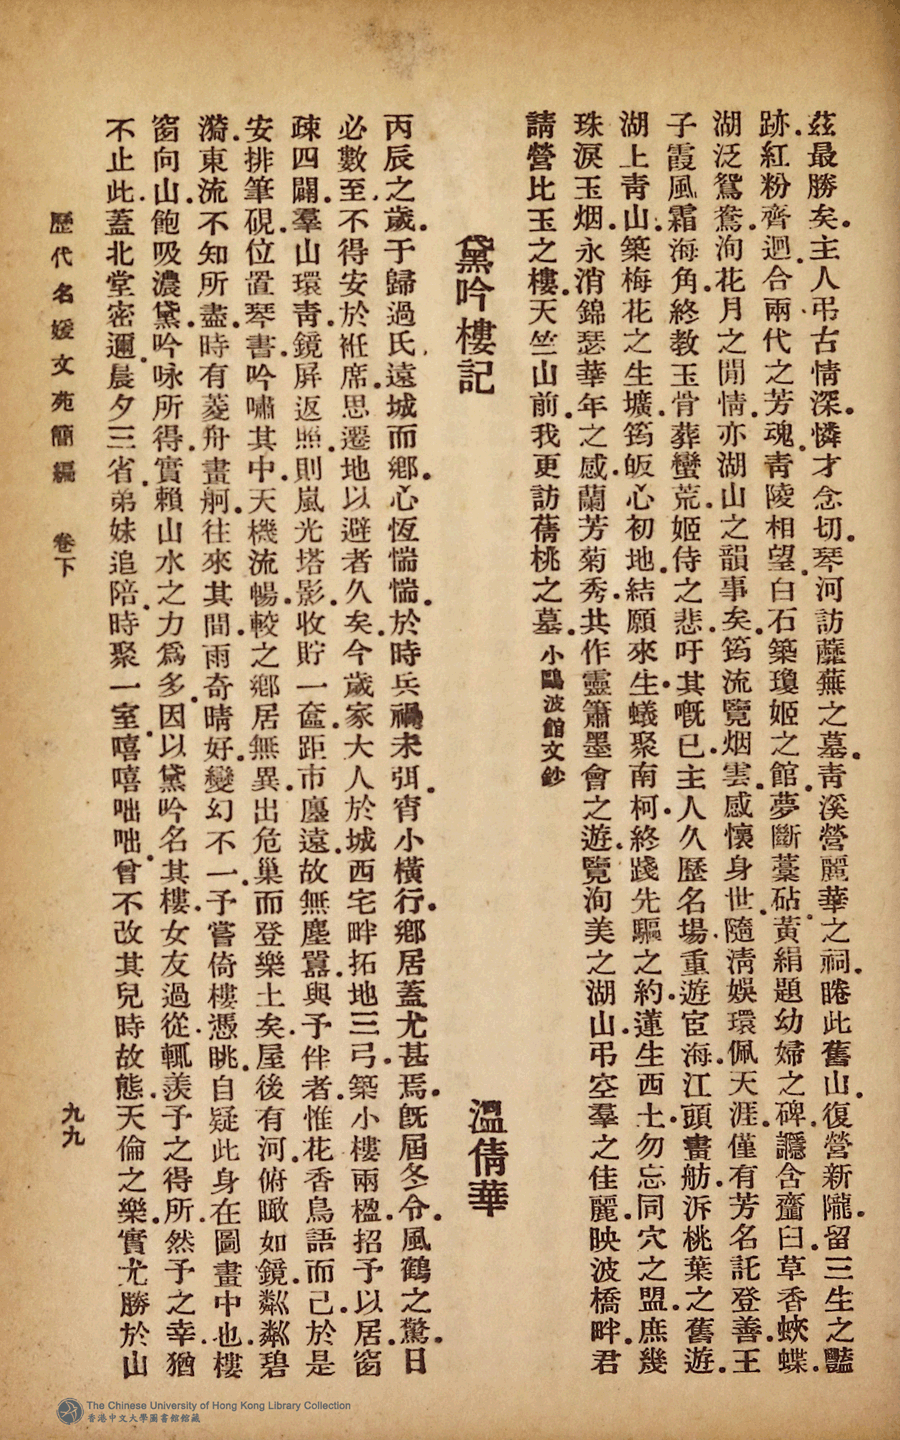 茲最勝矣.主人弔古情深.憐才念切.琴河訪蘼蕪之墓.青溪營麗華之祠.睠此舊山.復營新隴.留三生之豔
跡.紅粉齊迴.合兩代之芳魂.青陵相望.白石築瓊姬之館.夢斷藁砧.黃絹題幼婦之碑.讔含虀臼.草香蛺蝶.
湖泛鴛鴦.洵花月之閒情.亦湖山之韻事矣.筠流覽烟雲.感懷身世.隨淸娛環佩.天涯僅有芳名.託登善.王
子霞風霜.海角終教玉骨葬蠻荒.姬侍之悲.吁其嘅已.主人久歷名場.重遊宦海.江頭畫舫.泝桃葉之舊遊.
湖上青山.築梅花之生壙.筠皈心初地.結願來生.蟻聚南柯.終踐先驅之約.蓮生西土.勿忘同穴之盟.庶幾
珠淚玉烟.永消錦瑟華年之感.蘭芳菊秀.共作靈簫墨會之遊.覽洵美之湖山.弔空羣之佳麗.映波橋畔.君
請營比玉之樓.天竺山前.我更訪蒨桃之墓.小鷗波館文鈔
黛吟樓記
溫倩華
丙辰之歲.于歸過氏.遠城而鄉.心恆惴惴.於時兵禍未弭.宵小橫行.鄉居蓋尤甚焉.旣屆冬令.風鶴之驚.日
必數至.不得安於袵席.思遷地以避者久矣.今歲家大人於城西宅畔拓地三弓.築小樓兩楹.招予以居.窗
疎四闢.羣山環青.鏡屏返照.則嵐光塔影.收貯一奩.距市廛遠.故無塵囂.與予伴者.惟花香鳥語而已.於是
安排筆硯.位置琴書.吟嘯其中.天機流暢.較之鄉居無異.出危巢而登樂土矣.屋後有河.俯瞰如鏡.粼粼碧
漪.東流不知所盡.時有菱舟畫舸.往來其間.雨奇晴好.變幻不一.予嘗倚樓憑眺.自疑此身在圖畫中也.樓
窗向山.飽吸濃黛.吟咏所得.實賴山水之力爲多.因以黛吟名其樓.女友過從.輒羨予之得所.然予之幸.猶
不止此.蓋北堂密邇.晨夕三省.弟妹追陪.時聚一室.嘻嘻咄咄.曾不改其兒時故態.天倫之樂.實尤勝於山
歷代名媛文苑簡編 卷下
九九
The Chinese University of Hong Kong Library Collection
香港中文大學圖書館館藏